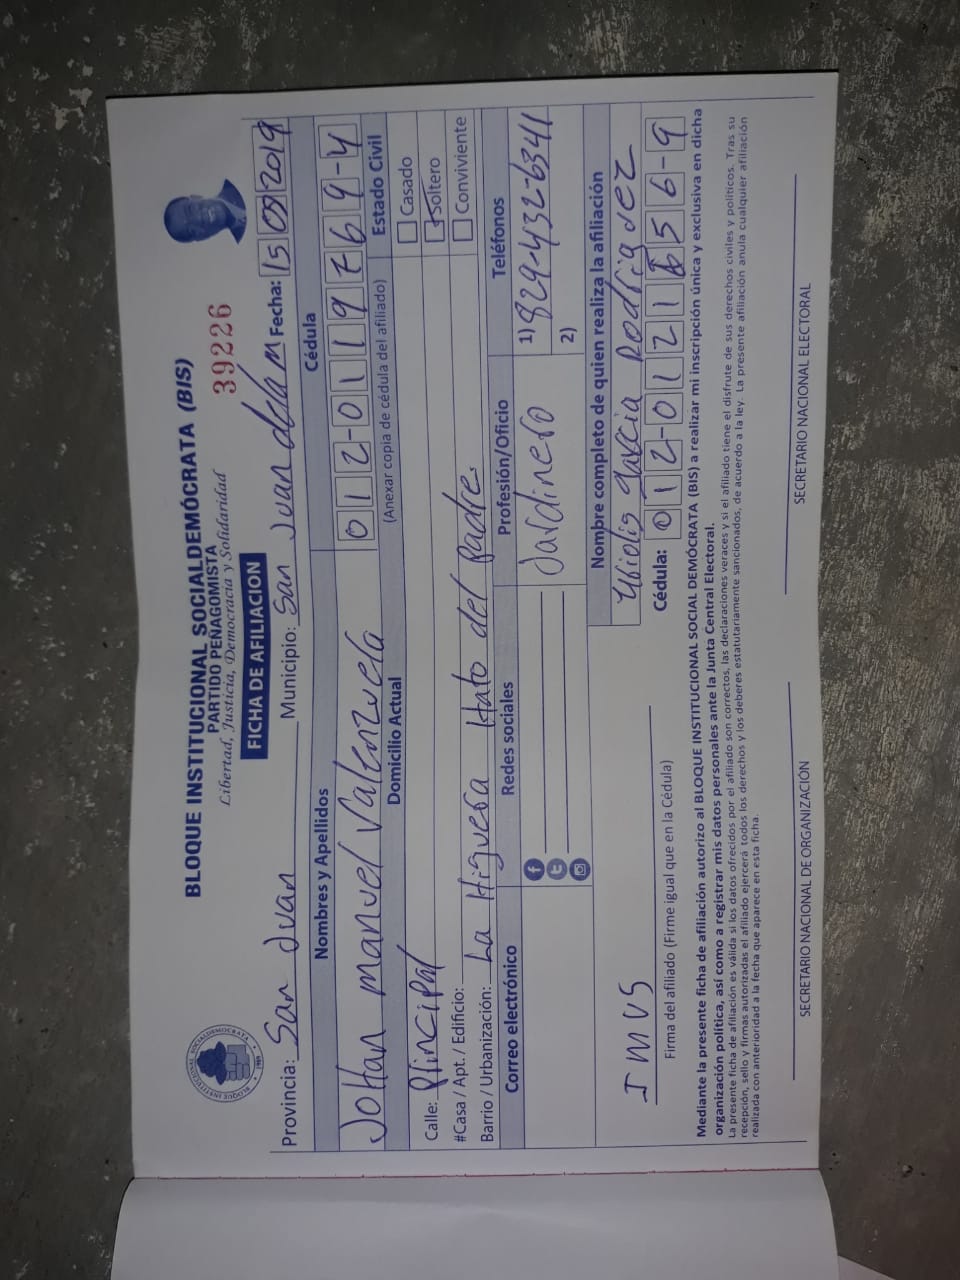 BLOQUE INSTITUCIONAL SOCIALDEMÓCRATA (BIS)
PARTIDO PEÑAGOMISTA
Libertad, Justicia, Democracia y Solidaridad
39226
FICHA DE AFILIACION
Provincia: San Juan Municipio: San Juan dela M Fecha: 15 09 2019
Nombres y Apellidos Cédula
Johan manuel Valenzuela 012-0119769-4
Domicilio Actual (Anexar copia de cédula del afiliado) Estado Civil
Calle: Plincipal Casado
#Casa / Apt. / Edificio: Soltero
Barrio / Urbanización: La Higuera Hato del padre Conviviente
Correo electrónico Redes sociales Profesión/Oficio Teléfonos
Jaldinero 1) 829-432-6341
2)
Nombre completo de quien realiza la afiliación
garcia Rodriguez
JMVS
Cédula: 012-0121 556-9
Firma del afiliado (Firme igual que en la Cédula)
Mediante la presente ficha de afiliación autorizo al BLOQUE INSTITUCIONAL SOCIAL DEMÓCRATA (BIS) a realizar mi inscripción única y exclusiva en dicha
organización política, así como a registrar mis datos personales ante la Junta Central Electoral.
La presente ficha de afiliación es válida si los datos ofrecidos por el afiliado son correctos, las declaraciones veraces y si el afiliado tiene el disfrute de sus derechos civiles y políticos. Tras su
recepción, sello y firmas autorizadas el afiliado ejercerá todos los derechos y los deberes estatutariamente sancionados, de acuerdo a la ley. La presente afiliación anula cualquier afiliación
realizada con anterioridad a la fecha que aparece en esta ficha.
SECRETARIO NACIONAL DE ORGANIZACIÓN SECRETARIO NACIONAL ELECTORAL